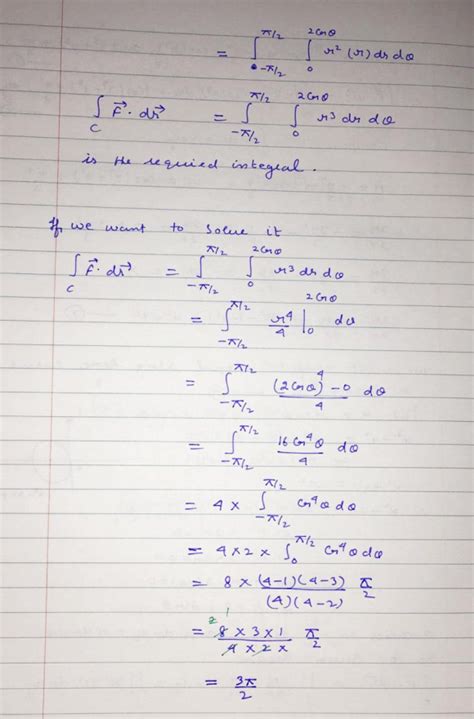 = ∫_{-π/2}^{π/2} ∫_0^{2cosθ} r² (r) dr dθ
∫_C F⃗ · dr⃗ = ∫_{-π/2}^{π/2} ∫_0^{2cosθ} r³ dr dθ
is the required integral.
If we want to solve it
∫_C F⃗ · dr⃗ = ∫_{-π/2}^{π/2} ∫_0^{2cosθ} r³ dr dθ
= ∫_{-π/2}^{π/2} r⁴/4 |_0^{2cosθ} dθ
= ∫_{-π/2}^{π/2} ((2cosθ)⁴ - 0)/4 dθ
= ∫_{-π/2}^{π/2} 16cos⁴θ/4 dθ
= 4 × ∫_{-π/2}^{π/2} cos⁴θ dθ
= 4 × 2 × ∫_0^{π/2} cos⁴θ dθ
= 8 × (4-1)(4-3)/((4)(4-2)) π/2
= 8 × 3 × 1/(4 × 2 ×) π/2
= 3π/2